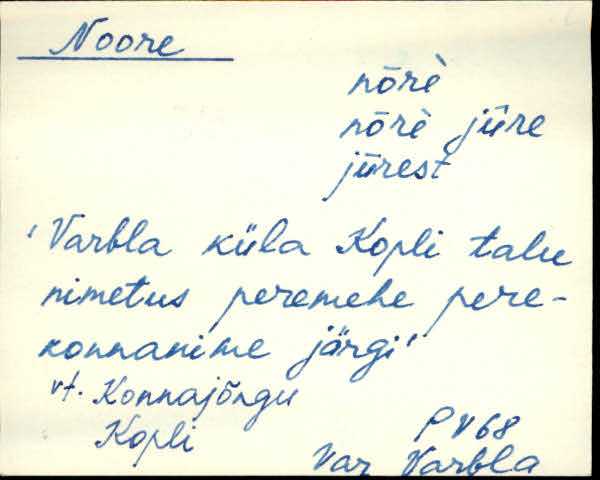 Noore
nōrè
nōrè jüre
jürest
'Varbla küla Kopli talu
nimetus peremehe pere-
konnanime järgi'
vt. Konnajõrgu
Kopli
PV68
Var Varbla